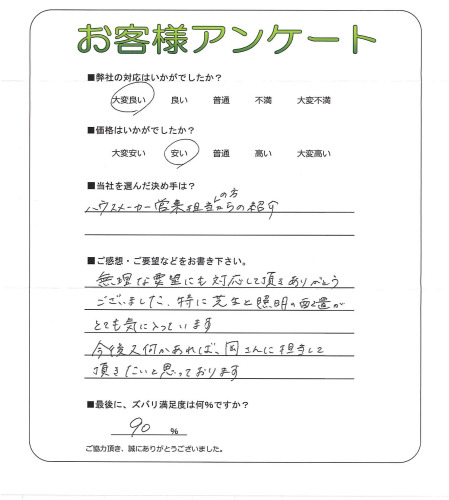 お客様アンケート
■弊社の対応はいかがでしたか？
大変良い 良い 普通 不満 大変不満
■価格はいかがでしたか？
大変安い 安い 普通 高い 大変高い
■当社を選んだ決め手は？
の方
ハウスメーカー営業担当からの紹介
■ご感想・ご要望などをお書き下さい。
無理な要望にも対応して頂きありがとう
ございました。特に芝生と照明の配置が
とても気に入っています
今後又何かあれば、岡さんに担当して
頂きたいと思っております
■最後に、ズバリ満足度は何%ですか？
90 %
ご協力頂き、誠にありがとうございました。